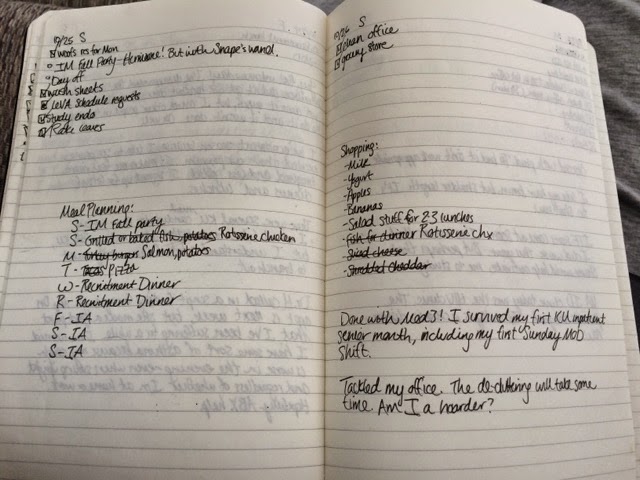 10/25 S
wefs res for Mon
IM Fall Party - Hermione! But with Snape's wand.
Day off
wash sheets
LeVA schedule requests
Study endo
Rake leaves
Meal Planning:
S - IM Fall party
S - Grilled or baked fish, potatoes Rotisserie chicken
M - turkey burgers Salmon, potatoes
T - Tacos Pizza
W - Recruitment Dinner
R - Recruitment Dinner
F - IA
S - IA
S - IA
10/26 S
clean office
grocery store
Shopping:
- Milk
- Yogurt
- Apples
- Bananas
- Salad stuff for 2-3 lunches
- fish for dinner Rotisserie chx
- Sliced cheese
- Shredded Cheddar
Done with Med3! I survived my first KU inpatient
senior month, including my first Sunday MOD
shift.
Tackled my office. The de-cluttering will take some
time. Am I a hoarder?